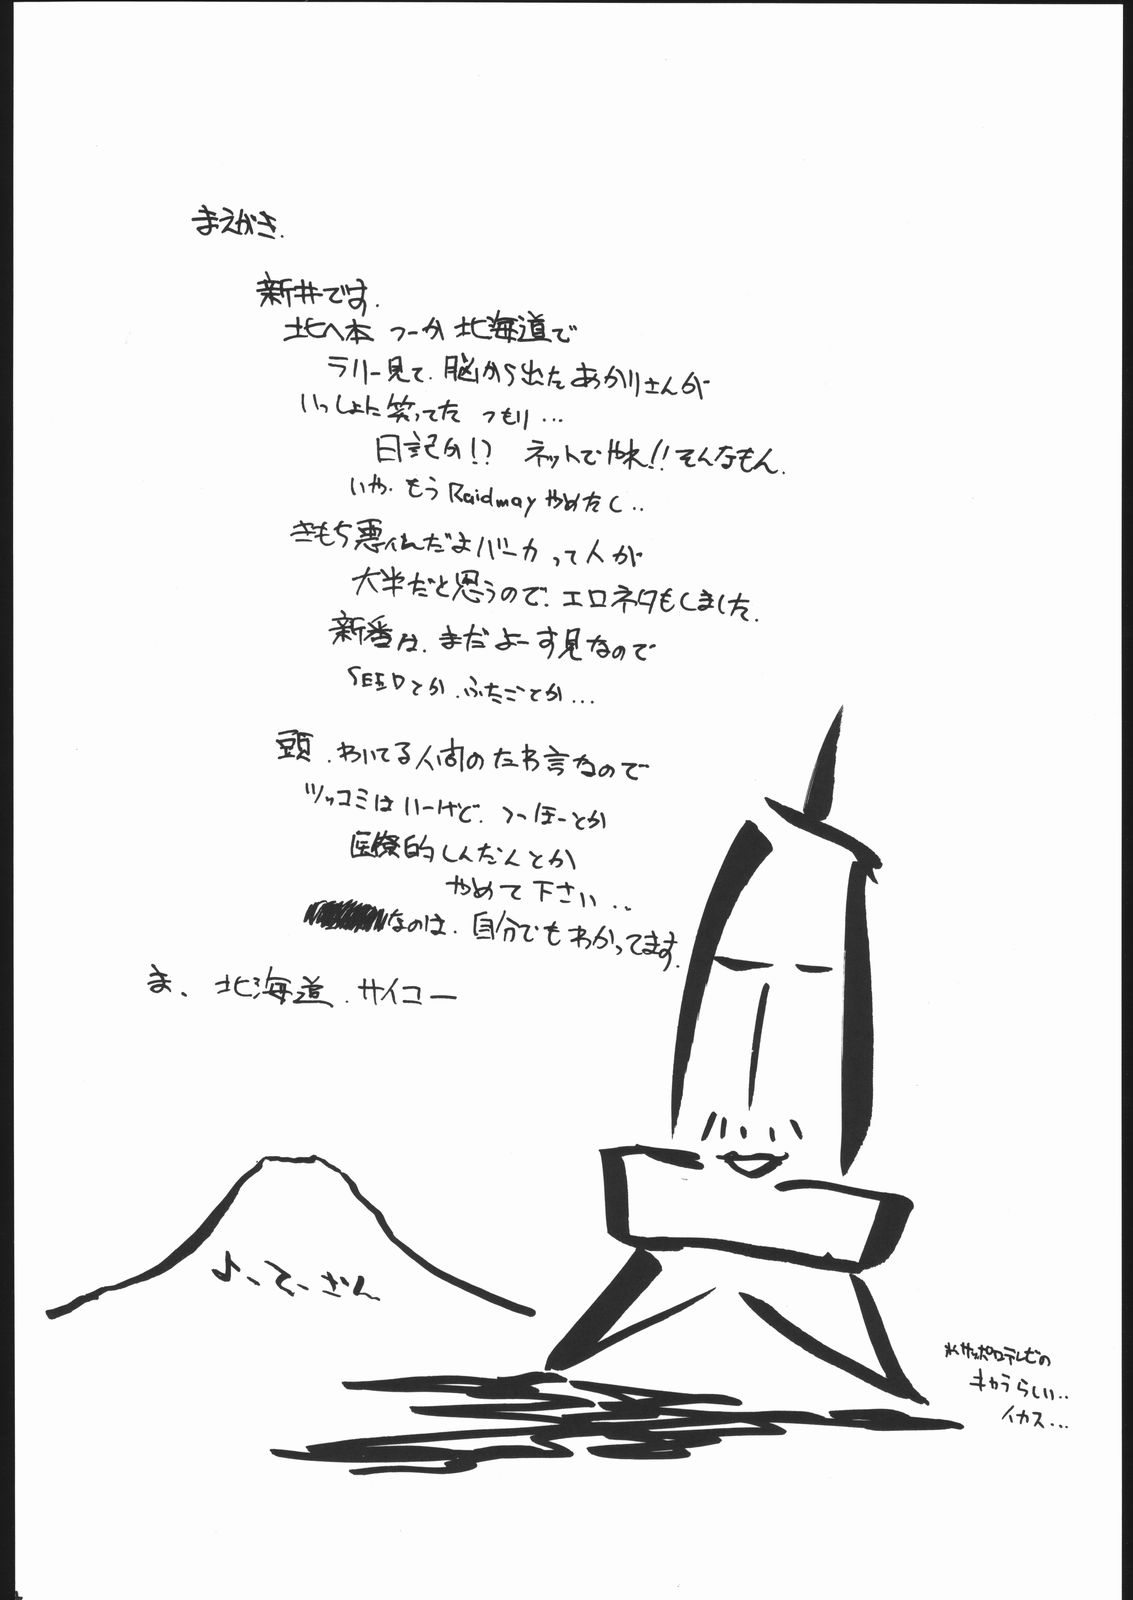 まえがき.
新井です.
北へ本 つーか 北海道で
ラリー見て.脳から出たあかりさんが
いっしょに笑ってた つもり…
日記か!? ネットでやれ!!そんなもん.
いや.もうRaidmayやめたし..
きもち悪いんだよバーカって人が
大半だと思うので.エロネタもしました.
新番は.まだよーす見なので
SEEDとか.ふたごとか...
頭.わいてる人間のたわ言なので
ツッコミはいーけど.つーほーとか
医療的しんだんとか
やめて下さい..
なのは.自分でもわかってます.
ま、北海道.サイコー
よーてーさん
※サッポロテレビの
キャラらしい..
イカス...